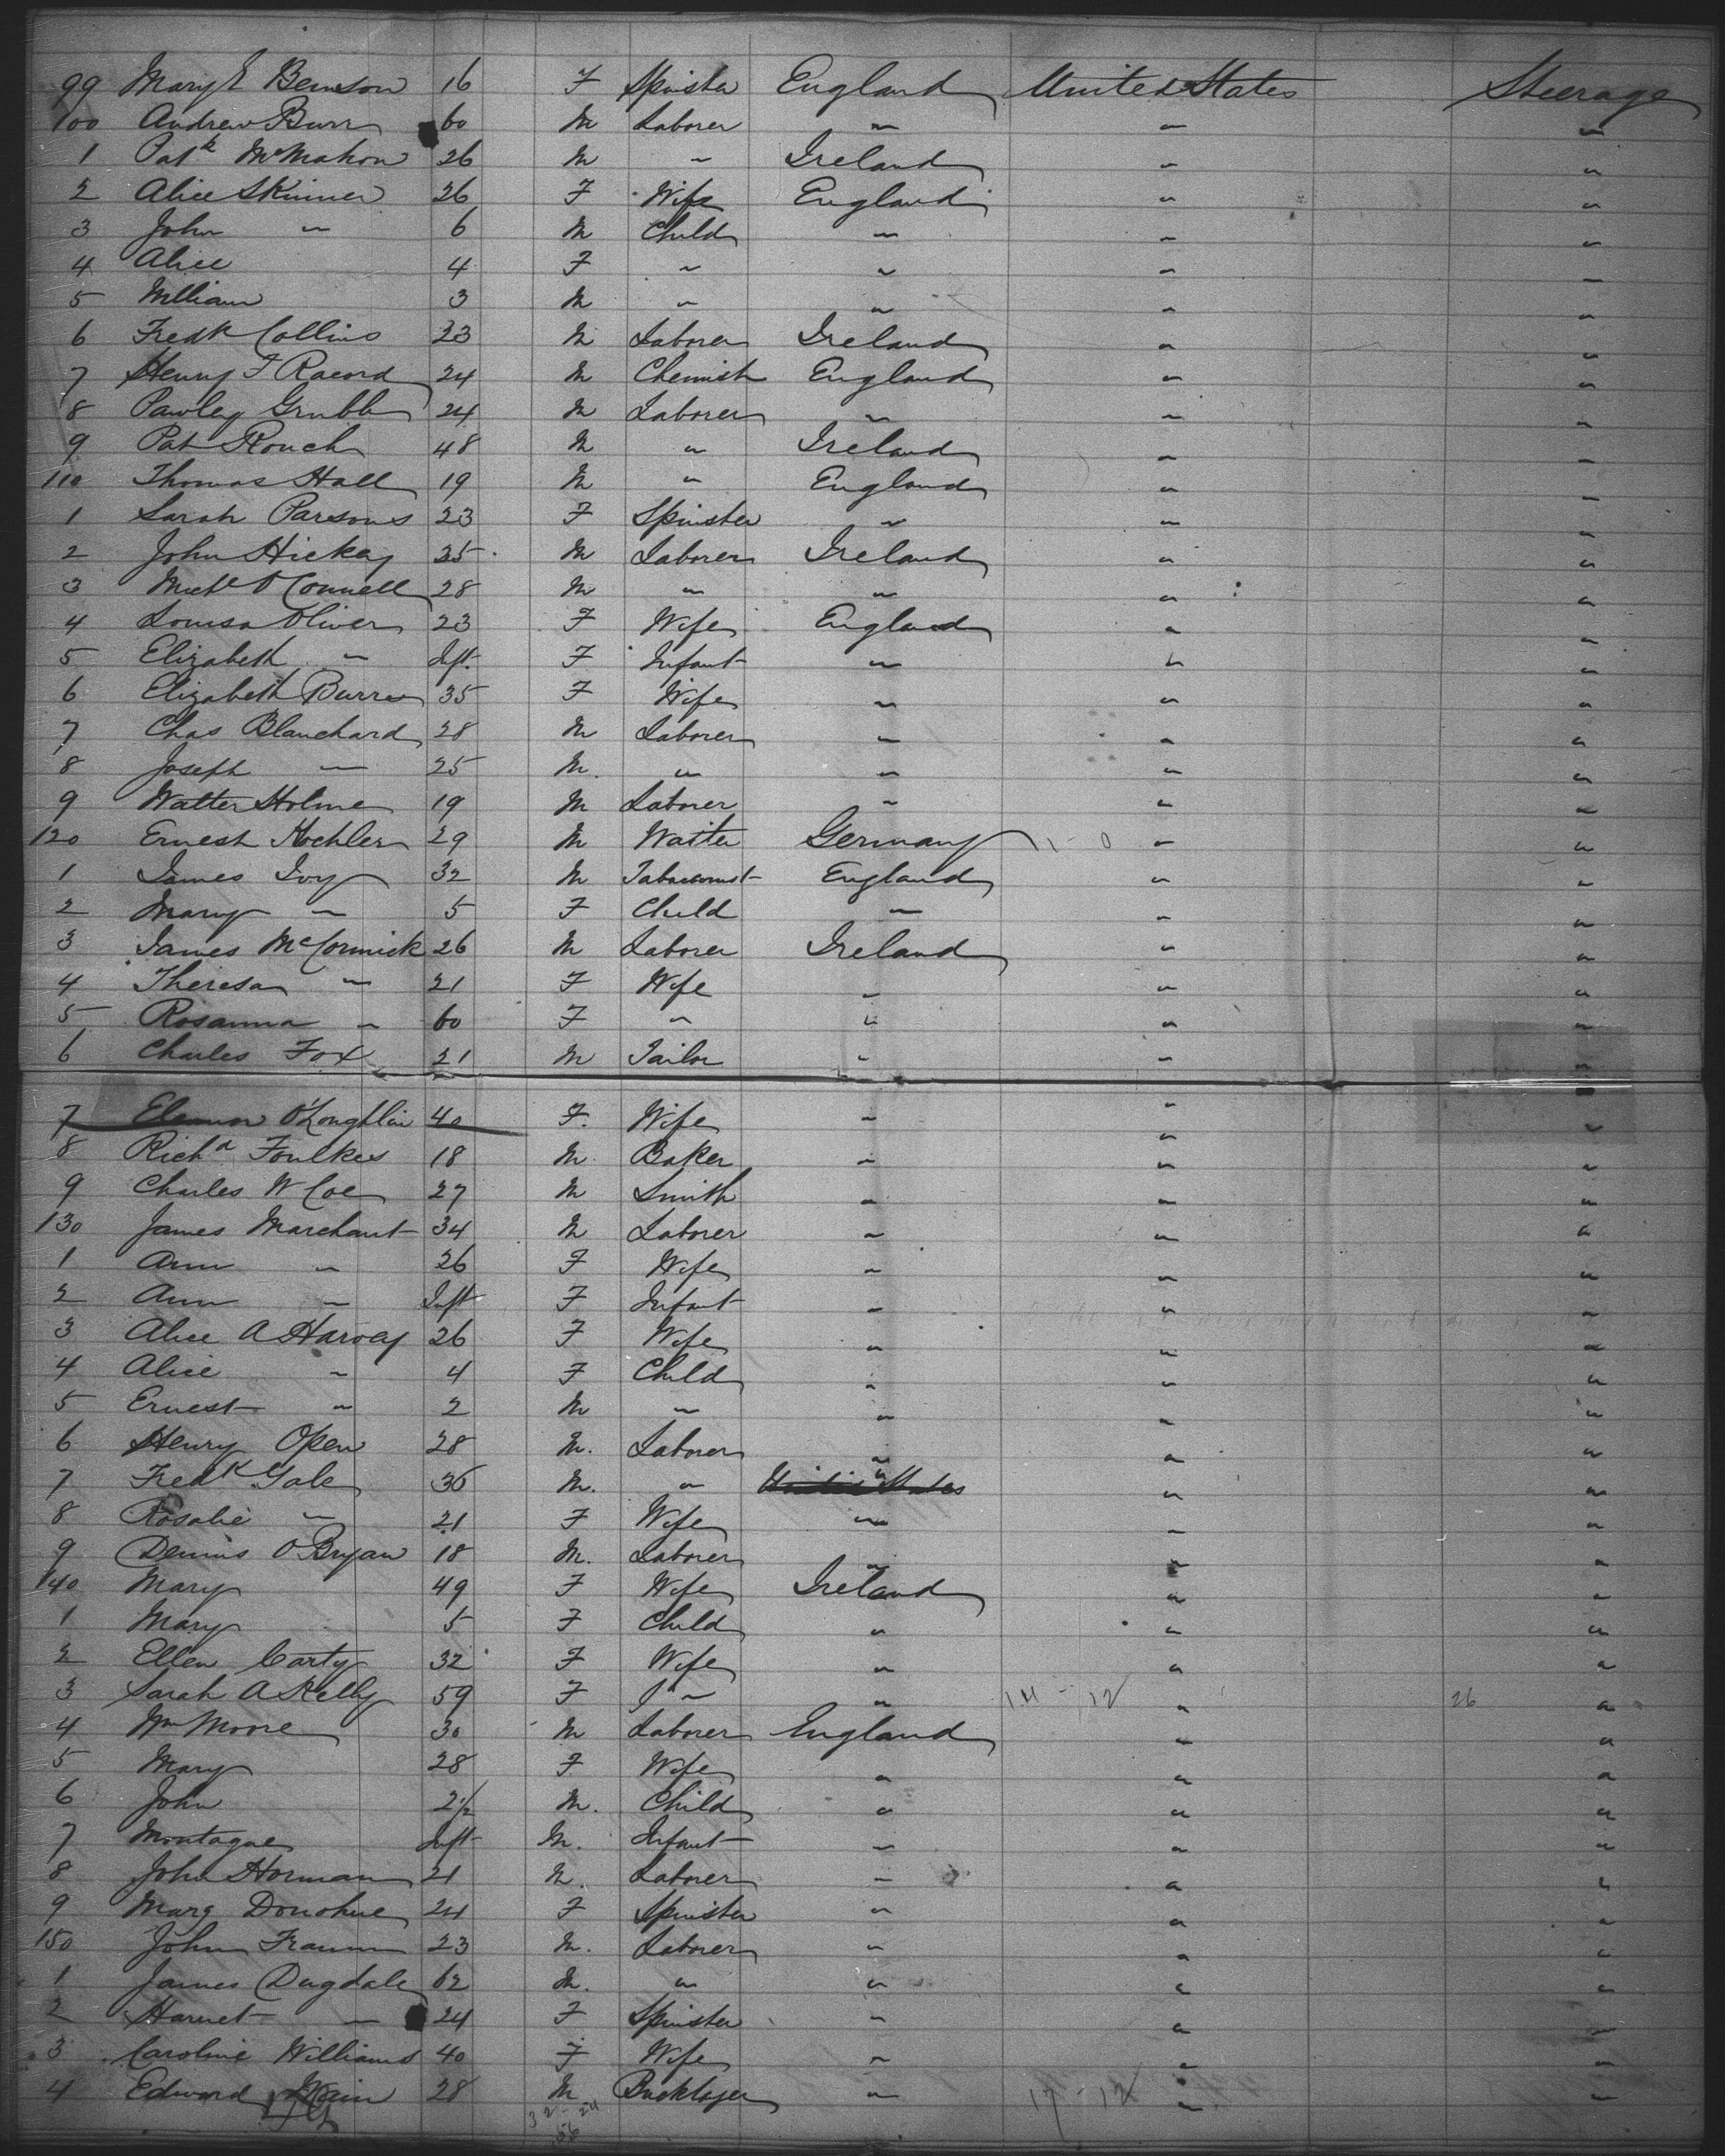 99 Mary E Benson 16 F Spinster England United States Steerage
100 Andrew Burr 60 M Laborer " " "
1 Patk McMahon 26 M " Ireland " "
2 Alice Skinner 26 F Wife England " "
3 John " 6 M Child " " "
4 Alice 4 F " " " "
5 William 3 M " " " "
6 Fredk Collins 23 M Laborer Ireland " "
7 Henry F Racord 24 M Chemist England " "
8 Pawley Grubb 24 M Laborer " " "
9 Pat Rouch 48 M " Ireland " "
110 Thomas Hall 19 M " England " "
1 Sarah Parsons 23 F Spinster " " "
2 John Hickey 35 M Laborer Ireland " "
3 Michl O'Connell 28 M " " " "
4 Louisa Oliver 23 F Wife England " "
5 Elizabeth " Inft. F Infant " " "
6 Elizabeth 35 F Wife " " "
7 Chas Blanchard 28 M Laborer " " "
8 Joseph " 25 M. " " " "
9 Walter Holme 19 M Laborer " " "
120 Ernest Koehler 29 M Waiter Germany " "
1 James Ivy 32 M Tobacconist England " "
2 Mary " 5 F Child " " "
3 James McCormick 26 M Laborer Ireland " "
4 Theresa " 21 F Wife " " "
5 Rosanna " 60 F " " " "
6 Charles Fox 21 M Tailor " " "
7 Eleanor O'Loughlin 40 F. Wife " " "
8 Richd Foulkes 18 M. Baker " " "
9 Charles W Coe 27 M Smith " " "
130 James Marchant 34 M Laborer " " "
1 Ann " 26 F Wife " " "
2 Ann " Inft F Infant " " "
3 Alice A Harvey 26 F Wife " " "
4 Alice " 4 F Child " " "
5 Ernest " 2 M " " " "
6 Henry Open 28 M. Laborer " " "
7 Fredk Gale 36 M. " United States " " "
8 Rosalie " 21 F Wife " " "
9 Dennis O'Bryan 18 M. Laborer " " "
140 Mary 49 F Wife Ireland " "
1 Mary 5 F Child " " "
2 Ellen Carty 32 F Wife " " "
3 Sarah A Kelly 59 F " " 14 - 12 " 26 "
4 Wm Moore 30 M Laborer England " "
5 Mary 28 F Wife " " "
6 John 2 1/2 M. Child " " "
7 Montague Inft M. Infant " " "
8 John Horman 21 M. Laborer " " "
9 Marg Donohue 24 F Spinster " " "
150 John 23 M. Laborer " " "
1 James Dugdale 62 M. " " " "
2 Harriet " 24 F Spinster " " "
3 Caroline Williams 40 F Wife " " "
4 Edward 28 M Bricklayer " 17 - 12 " "
32 - 24
56